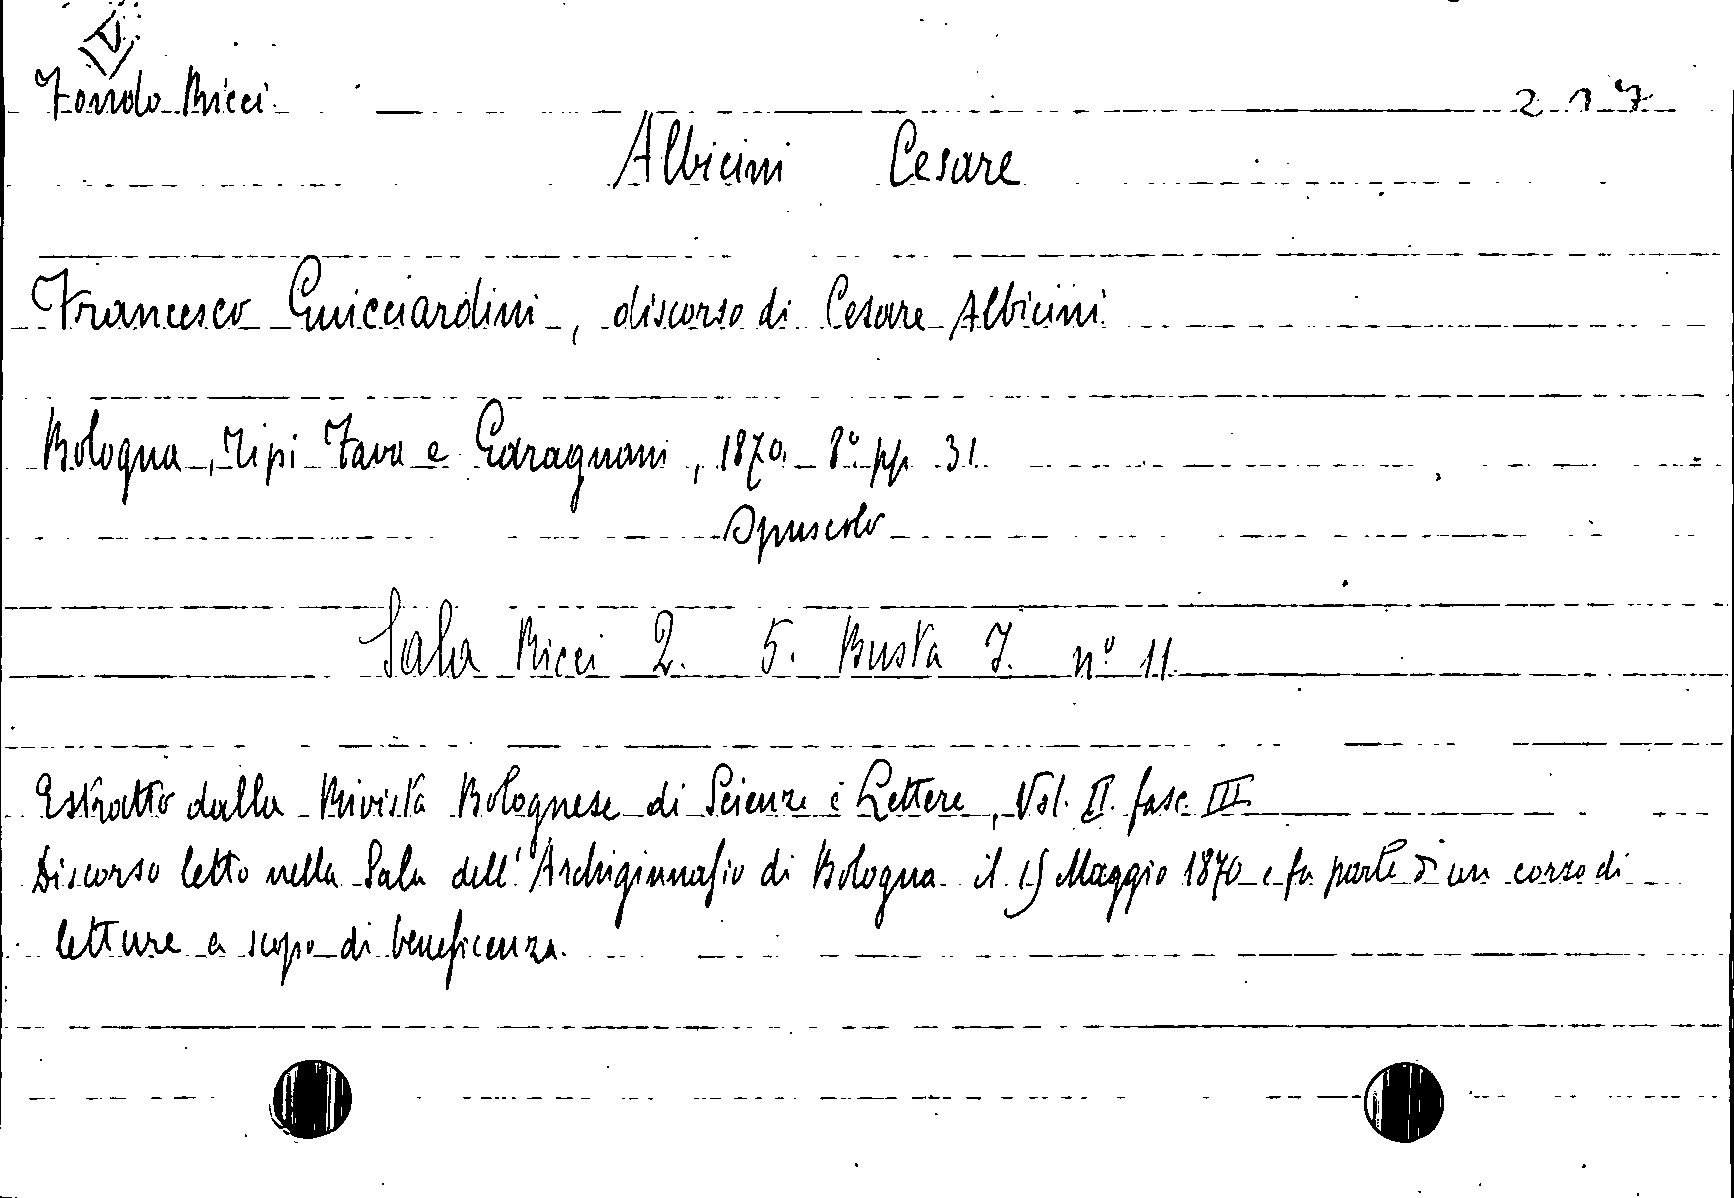 Fondo Ricci 217
Albicini Cesare
Francesco Guicciardini, discorso di Cesare Albicini
Bologna, Tipi Fava e Garagnani, 1870. 8° pp. 31.
Opuscolo
Sala Ricci 2. 5. Busta I. n° 11.
Estratto dalla Rivista Bolognese di Scienze e Lettere, Vol. II. fasc. III.
Discorso letto nella Sala dell'Archiginnasio di Bologna il 15 Maggio 1870 e fa parte d'un corso di
letture a scopo di beneficenza.